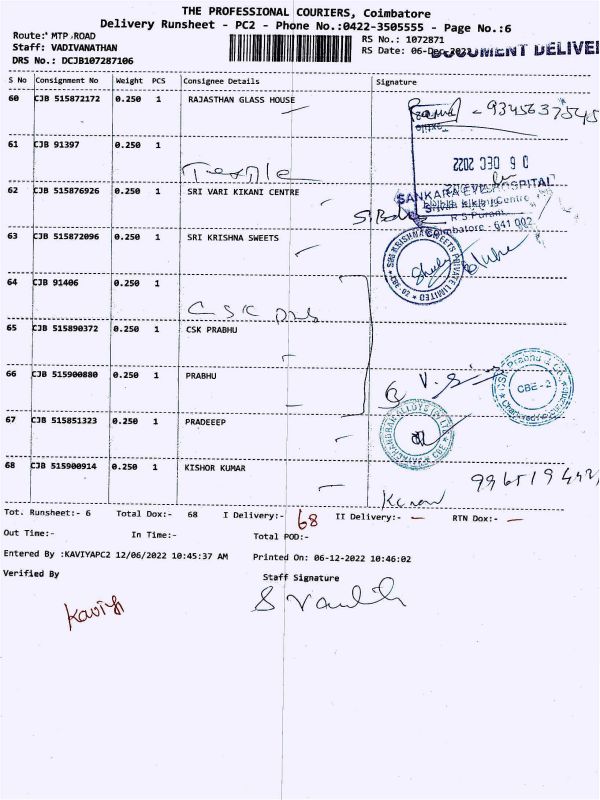 THE PROFESSIONAL COURIERS, Coimbatore
Delivery Runsheet - PC2 - Phone No.:0422-3505555 - Page No.:6
Route: MTP ROAD
RS No.: 1072871
Staff: VADIVANATHAN
RS Date: 06-Dec-2022
DRS No.: DCJB107287106
S No Consignment No Weight PCS Consignee Details Signature
60 CJB 515872172 0.250 1 RAJASTHAN GLASS HOUSE
61 CJB 91397 0.250 1
Textile
0 6 DEC 2022
62 CJB 515876926 0.250 1 SRI VARI KIKANI CENTRE
SANKARA EYE HOSPITAL
R S Puram
Coimbatore - 641 002
63 CJB 515872096 0.250 1 SRI KRISHNA SWEETS
SRI KRISHNA SWEETS PRIVATE LIMITED
64 CJB 91406 0.250 1
65 CJB 515890372 0.250 1 CSK PRABHU
66 CJB 515900880 0.250 1 PRABHU
CSK Prabhu & Co
CBE - 2
Chartered Accountants
67 CJB 515851323 0.250 1 PRADEEEP
68 CJB 515900914 0.250 1 KISHOR KUMAR
Tot. Runsheet:- 6 Total Dox:- 68 I Delivery:- 68 II Delivery:- — RTN Dox:- —
Out Time:- In Time:- Total POD:-
Entered By :KAVIYAPC2 12/06/2022 10:45:37 AM Printed On: 06-12-2022 10:46:02
Verified By Staff Signature
Kaviya